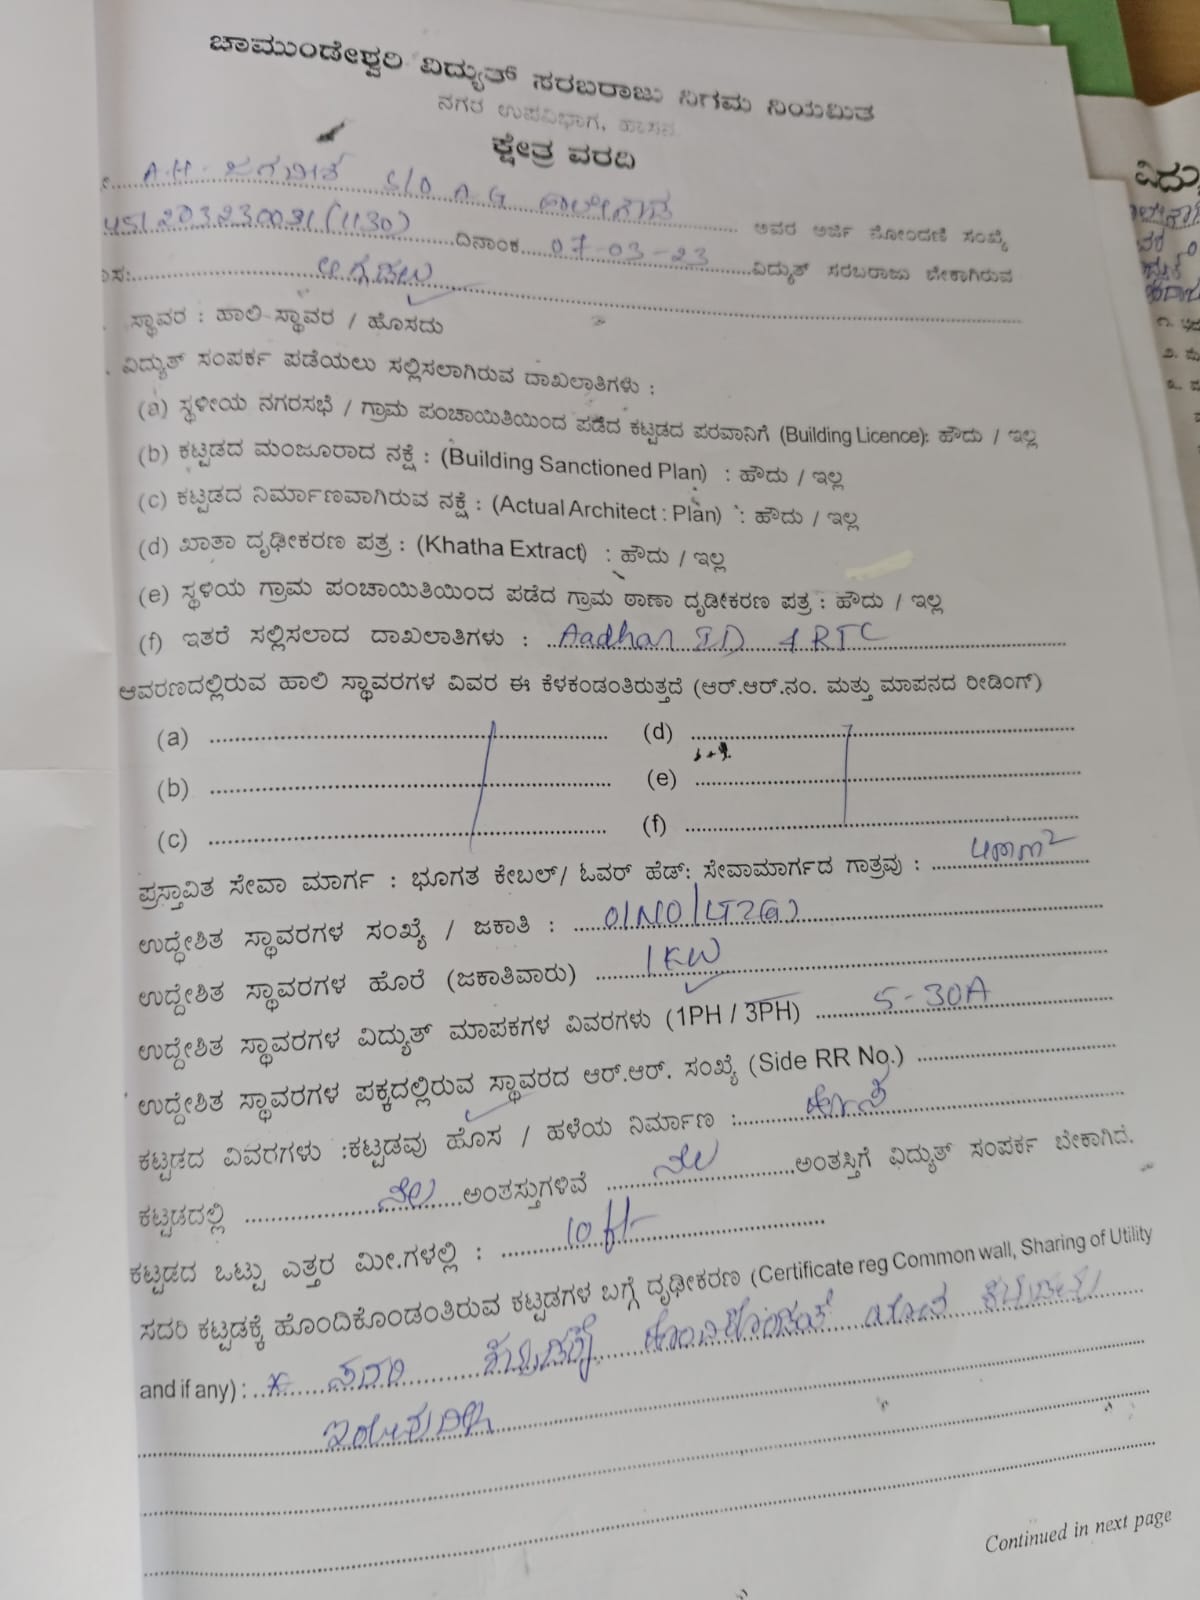 ಚಾಮುಂಡೇಶ್ವರಿ ವಿದ್ಯುತ್ ಸರಬರಾಜು ನಿಗಮ ನಿಯಮಿತ
ನಗರ ಉಪವಿಭಾಗ, ಹಾಸನ
ಕ್ಷೇತ್ರ ವರದಿ
A.H. ಜಗದೀಶ S/O A G
ಅವರ ಅರ್ಜಿ ನೋಂದಣಿ ಸಂಖ್ಯೆ
(1130) ದಿನಾಂಕ 07-03-23 ವಿದ್ಯುತ್ ಸರಬರಾಜು ಬೇಕಾಗಿರುವ
ಸ್ಥಾವರ : ಹಾಲಿ ಸ್ಥಾವರ / ಹೊಸದು
ವಿದ್ಯುತ್ ಸಂಪರ್ಕ ಪಡೆಯಲು ಸಲ್ಲಿಸಲಾಗಿರುವ ದಾಖಲಾತಿಗಳು :
(a) ಸ್ಥಳೀಯ ನಗರಸಭೆ / ಗ್ರಾಮ ಪಂಚಾಯಿತಿಯಿಂದ ಪಡೆದ ಕಟ್ಟಡದ ಪರವಾನಿಗೆ (Building Licence): ಹೌದು / ಇಲ್ಲ
(b) ಕಟ್ಟಡದ ಮಂಜೂರಾದ ನಕ್ಷೆ : (Building Sanctioned Plan) : ಹೌದು / ಇಲ್ಲ
(c) ಕಟ್ಟಡದ ನಿರ್ಮಾಣವಾಗಿರುವ ನಕ್ಷೆ : (Actual Architect : Plan) : ಹೌದು / ಇಲ್ಲ
(d) ಖಾತಾ ದೃಢೀಕರಣ ಪತ್ರ : (Khatha Extract) : ಹೌದು / ಇಲ್ಲ
(e) ಸ್ಥಳಿಯ ಗ್ರಾಮ ಪಂಚಾಯಿತಿಯಿಂದ ಪಡೆದ ಗ್ರಾಮ ಠಾಣಾ ದೃಢೀಕರಣ ಪತ್ರ : ಹೌದು / ಇಲ್ಲ
(f) ಇತರೆ ಸಲ್ಲಿಸಲಾದ ದಾಖಲಾತಿಗಳು : Aadhar ID & RTC
ಆವರಣದಲ್ಲಿರುವ ಹಾಲಿ ಸ್ಥಾವರಗಳ ವಿವರ ಈ ಕೆಳಕಂಡಂತಿರುತ್ತದೆ (ಆರ್.ಆರ್.ನಂ. ಮತ್ತು ಮಾಪನದ ರೀಡಿಂಗ್)
(a) (d)
(b) (e)
(c) (f)
ಪ್ರಸ್ತಾವಿತ ಸೇವಾ ಮಾರ್ಗ : ಭೂಗತ ಕೇಬಲ್/ ಓವರ್ ಹೆಡ್: ಸೇವಾಮಾರ್ಗದ ಗಾತ್ರವು : 4mm²
ಉದ್ದೇಶಿತ ಸ್ಥಾವರಗಳ ಸಂಖ್ಯೆ / ಜಕಾತಿ : 01NO/LT2(a)
ಉದ್ದೇಶಿತ ಸ್ಥಾವರಗಳ ಹೊರೆ (ಜಕಾತಿವಾರು) 1KW
ಉದ್ದೇಶಿತ ಸ್ಥಾವರಗಳ ವಿದ್ಯುತ್ ಮಾಪಕಗಳ ವಿವರಗಳು (1PH / 3PH) 5-30A
ಉದ್ದೇಶಿತ ಸ್ಥಾವರಗಳ ಪಕ್ಕದಲ್ಲಿರುವ ಸ್ಥಾವರದ ಆರ್.ಆರ್. ಸಂಖ್ಯೆ (Side RR No.)
ಕಟ್ಟಡದ ವಿವರಗಳು :ಕಟ್ಟಡವು ಹೊಸ / ಹಳೆಯ ನಿರ್ಮಾಣ : ಹೊಸ
ಕಟ್ಟಡದಲ್ಲಿ ನೆಲ ಅಂತಸ್ತುಗಳಿವೆ ನೆಲ ಅಂತಸ್ತಿಗೆ ವಿದ್ಯುತ್ ಸಂಪರ್ಕ ಬೇಕಾಗಿದೆ.
ಕಟ್ಟಡದ ಒಟ್ಟು ಎತ್ತರ ಮೀ.ಗಳಲ್ಲಿ : 10 ft
ಸದರಿ ಕಟ್ಟಡಕ್ಕೆ ಹೊಂದಿಕೊಂಡಂತಿರುವ ಕಟ್ಟಡಗಳ ಬಗ್ಗೆ ದೃಢೀಕರಣ (Certificate reg Common wall, Sharing of Utility
and if any) : * ಸದರಿ ಕಟ್ಟಡಕ್ಕೆ ಹೊಂದಿಕೊಂಡಂತೆ ಯಾವ ಕಟ್ಟಡವು
ಇರುವುದಿಲ್ಲ
Continued in next page